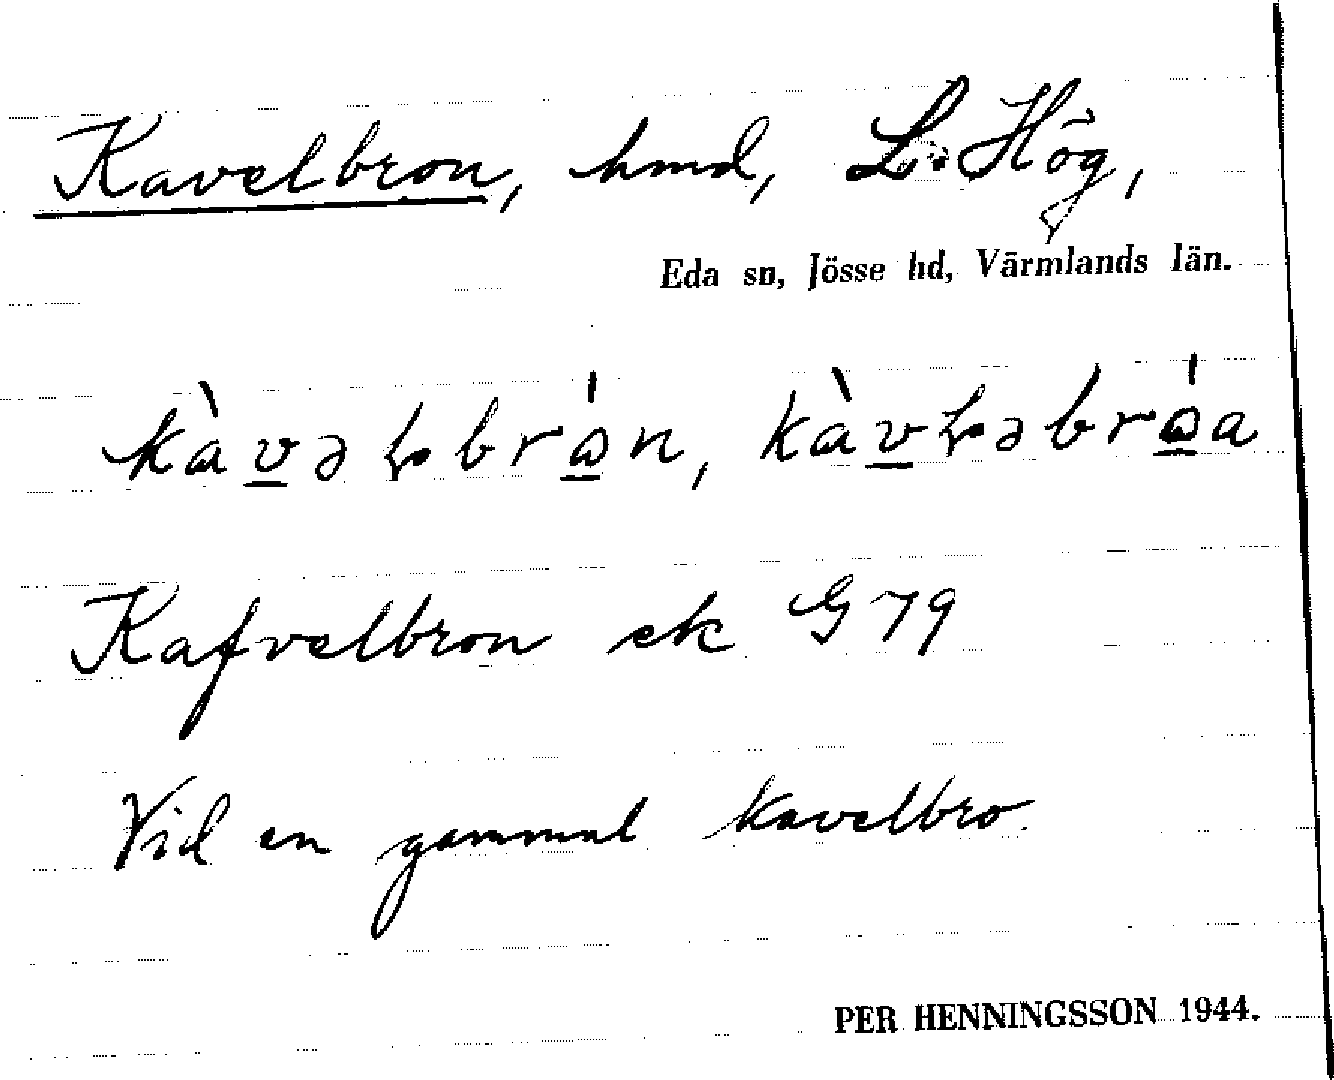 Kavelbron, hmd, L. Hög,
Eda sn, Jösse hd, Värmlands län.
Kafvelbron ek G 79
Vid en gammal kavelbro.
PER HENNINGSSON 1944.